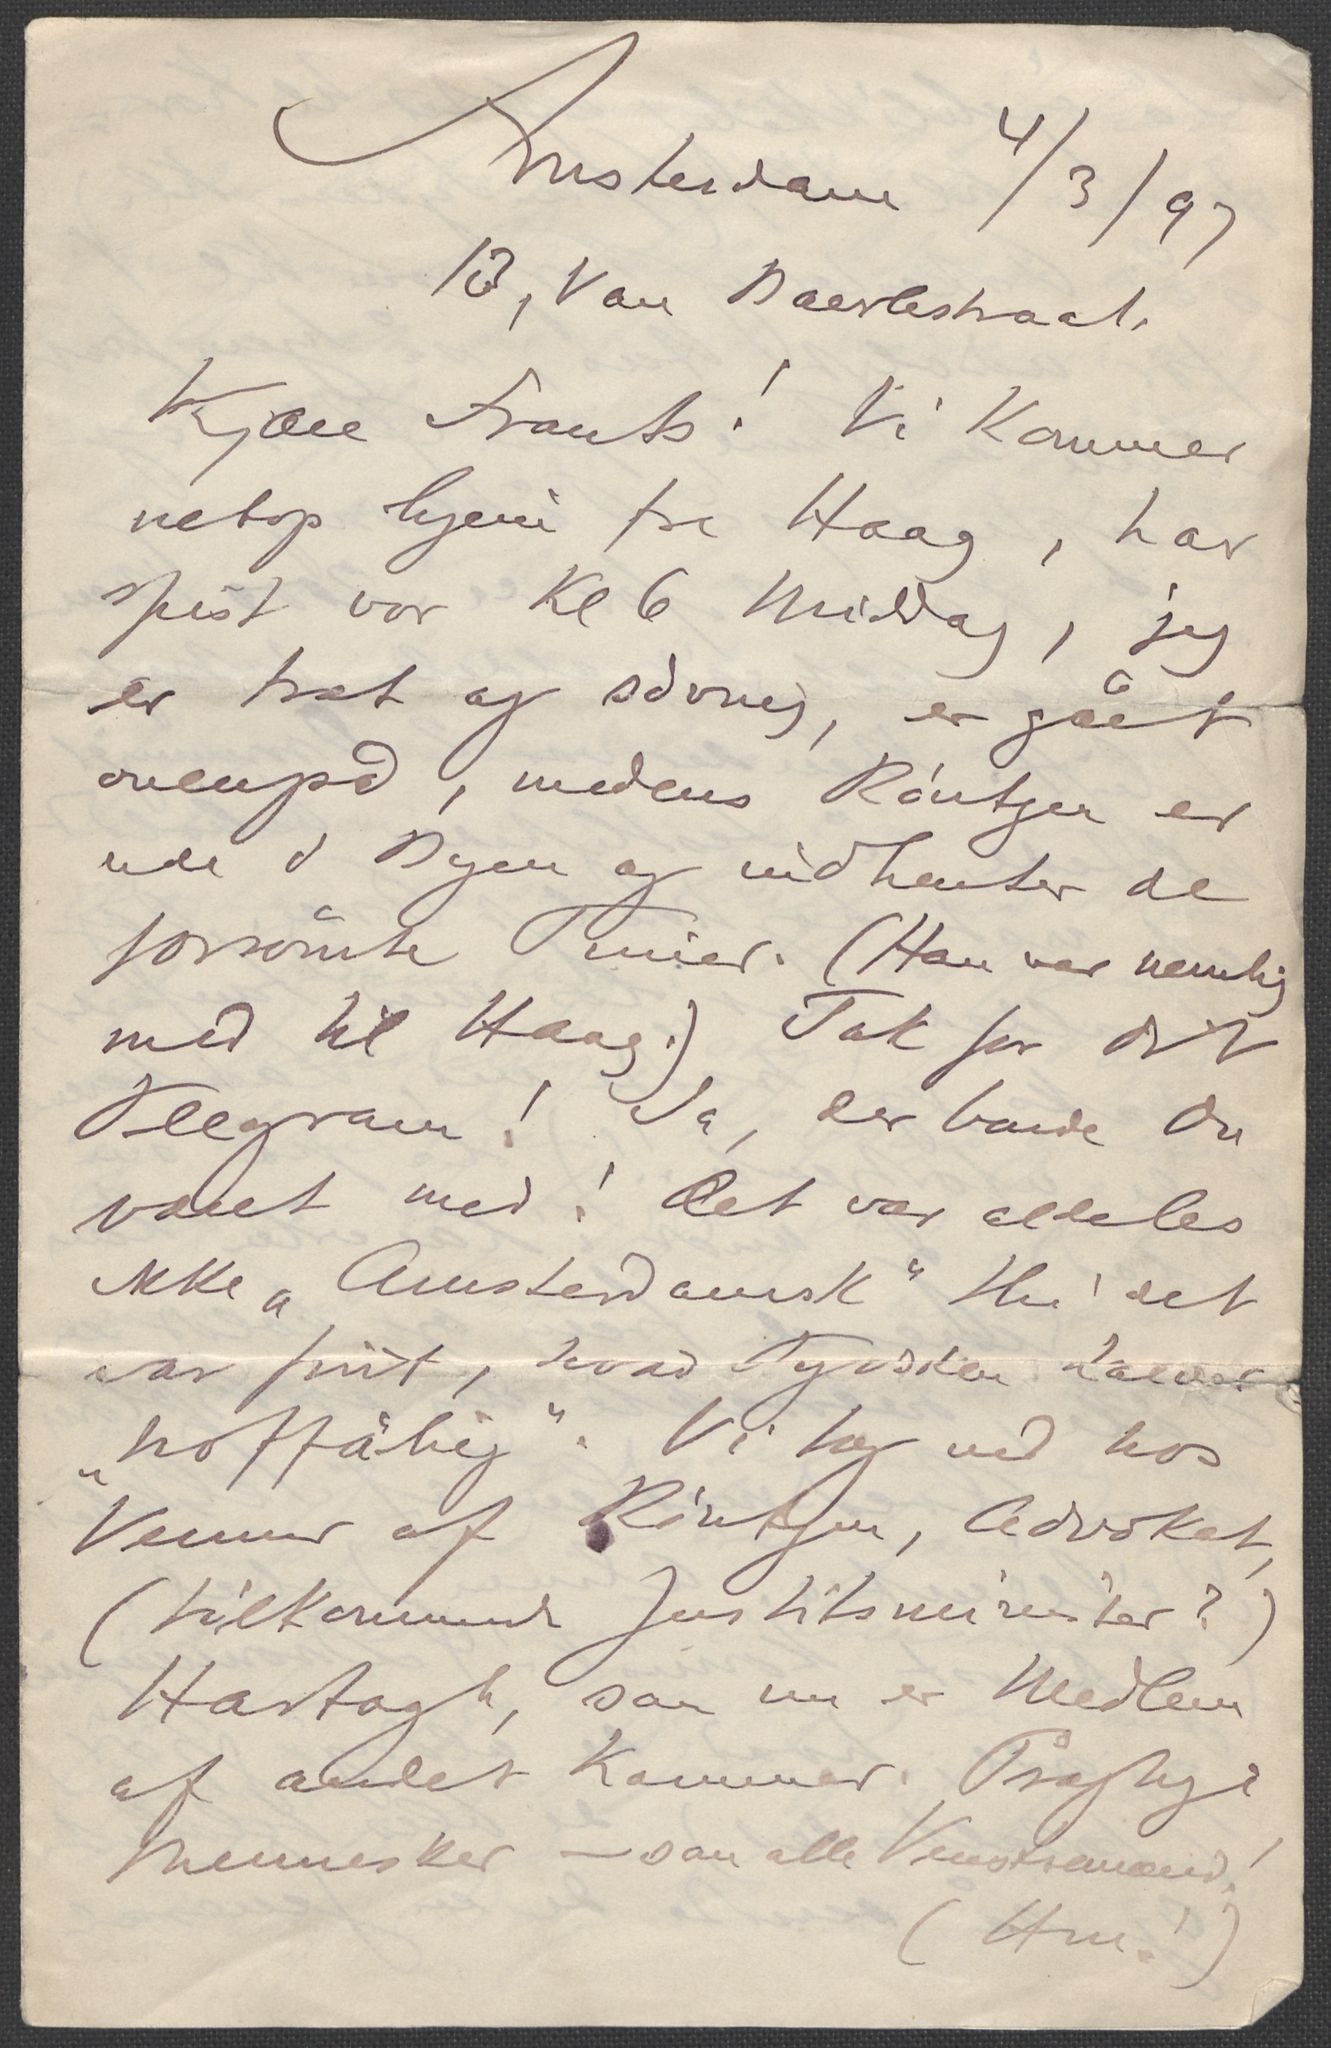 Amsterdam 4/3/97
13, Van Baerlestraat.
Kjære Frants! Vi kommer
netop hjem fra Haag, har
spist vor Kl 6 Middag, jeg
er træt og søvnig, er gået
ovenpå, medens Röntgen er
ude i Byen og indhenter de
forsömte Timer. (Han var nemlig
med til Haag.) Tak for Dit
Telegram! Ja, der burde Du
været med! Det var aldeles
ikke „Amsterdamsk" thi det
var fint, hvad Tysken kalder
„hoffähig". Vi tog ind hos
Venner af Röntgen, Advokat,
(tilkommende Justitsminister?)
Hartogh, som nu er Medlem
af andet Kammer. Prægtige
Mennesker – som alle Venstremænd!
(Hm!)